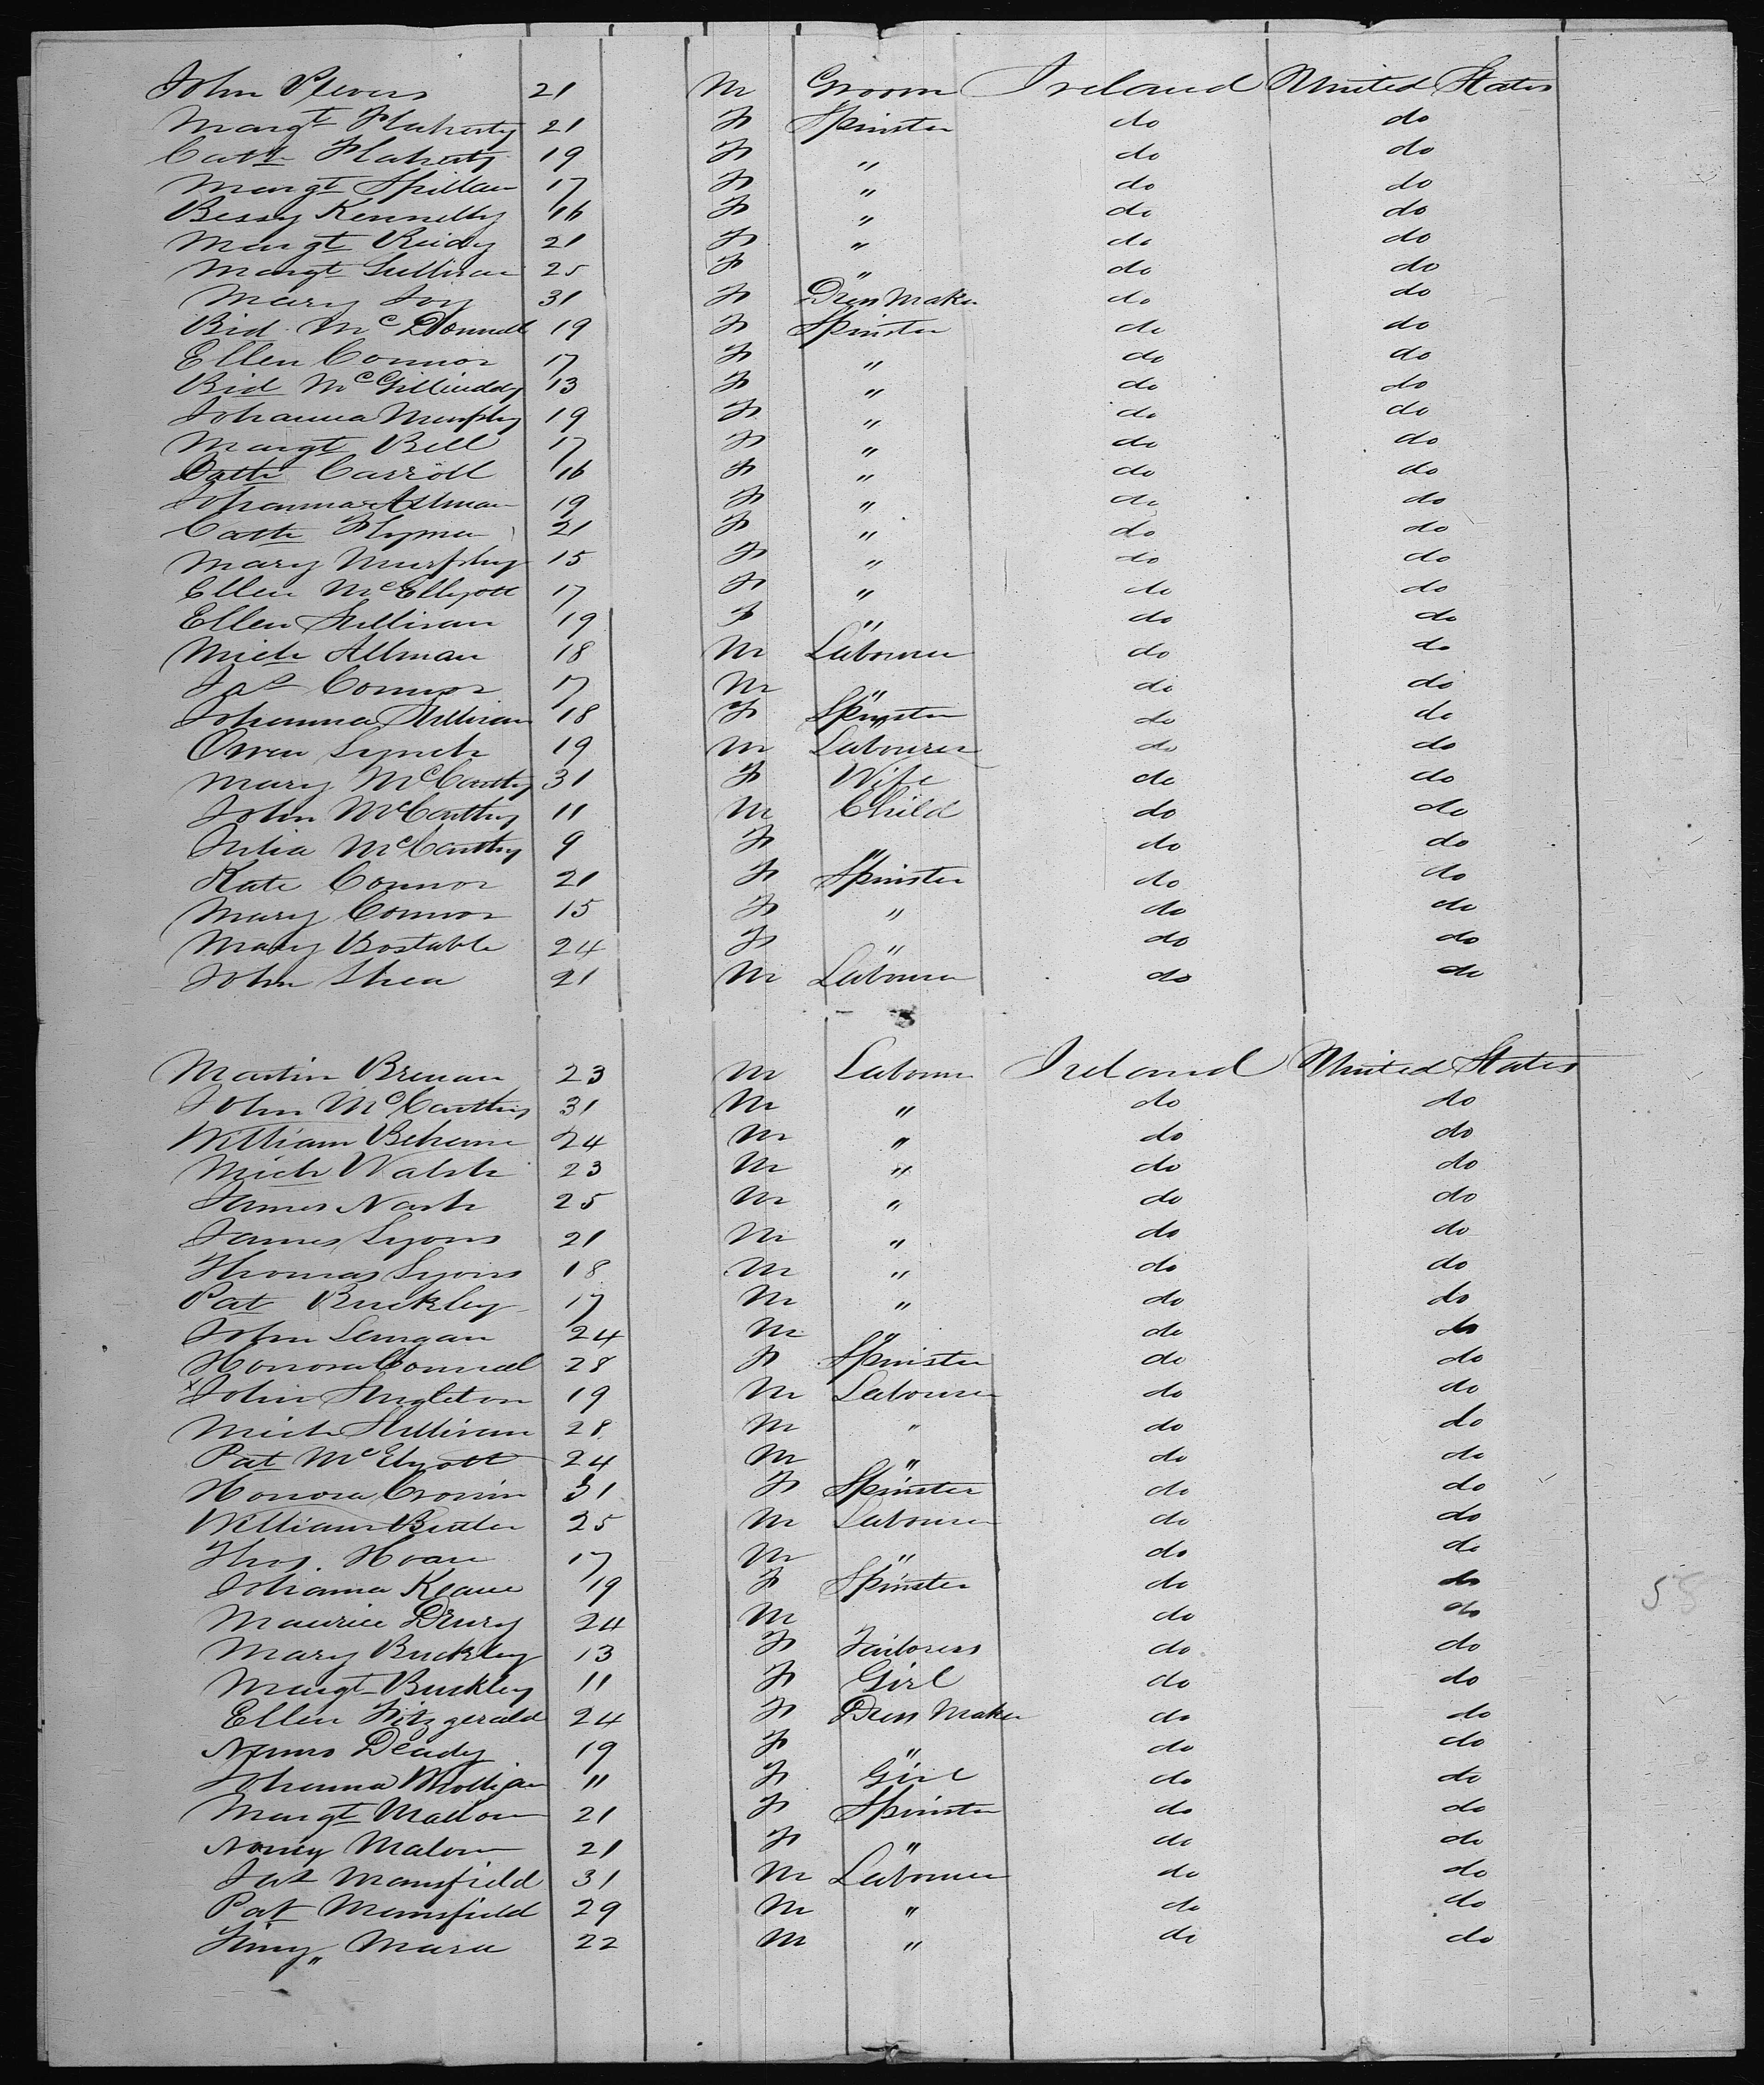 John Revers 21 M Groom Ireland United States
Margt Flaherty 21 F Spinster do do
Cath Flaherty 19 F " do do
Margt Spillan 17 F " do do
Bessy Kennelly 16 F " do do
Margt Reidy 21 F " do do
Margt Sullivan 25 F " do do
Mary Joy 31 F Dress Maker do do
Bid Mc Donnell 19 F Spinster do do
Ellen Connor 17 F " do do
Bid McGillicuddy 13 F " do do
Johanna Murphy 19 F " do do
Margt Bell 17 F " do do
Cath Carroll 16 F " do do
Johanna Allman 19 F " do do
Cath 21 F " do do
Mary Murphy 15 F " do do
Ellen McElligott 17 F " do do
Ellen Sullivan 19 F " do do
Mich Allman 18 M Labourer do do
Jas Connor 17 M " do do
Johanna Sullivan 18 F Spinster do do
Owen Lynch 19 M Labourer do do
Mary McCarthy 31 F Wife do do
John McCarthy 11 M Child do do
Julia McCarthy 9 F " do do
Kate Connor 21 F Spinster do do
Mary Connor 15 F " do do
Mary Bostable 24 F " do do
John Shea 21 M Labourer do do
Martin Brenan 23 M Labourer Ireland United States
John McCarthy 31 M " do do
William Behane 24 M " do do
Mich Walsh 23 M " do do
James Nash 25 M " do do
James Lyons 21 M " do do
Thomas Lyons 18 M " do do
Pat Buckley 17 M " do do
John 24 M " do do
Honora Connell 28 F Spinster do do
x John Singleton 19 M Labourer do do
Mich Sullivan 28 M " do do
Pat McElyott 24 M " do do
Honora Cronin 31 F Spinster do do
William Butler 25 M Labourer do do
Thos. Hoare 17 M " do do
Johanna Keane 19 F Spinster do do
Maurice Drury 24 M do do
Mary Buckley 13 F Tailoress do do
Margt Buckley 11 F Girl do do
Ellen Fitzgerald 24 F Dress Maker do do
Deady 19 F " do do
Johanna 11 F Girl do do
Margt Mallon 21 F Spinster do do
Nancy Malon 21 F " do do
Jas Mansfield 31 M Labourer do do
Pat Mansfield 29 M " do do
Mara 22 M " do do
58